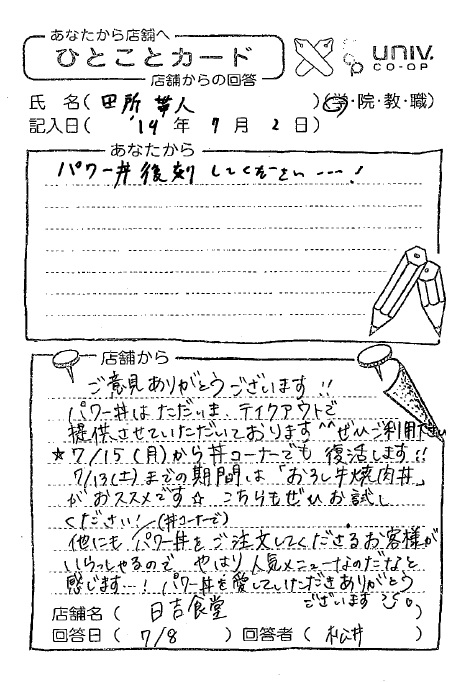 あなたから店舗へ
ひとことカード
店舗からの回答
univ.
CO-OP
氏 名( 田所 華人 )(学・院・教・職)
記入日( '19 年 7 月 2 日)
あなたから
パワー丼 後刻 してください…!
店舗から
ご意見ありがとうございます!!
パワー丼は ただいま、テイクアウトで
提供させていただいております^^ ぜひご利用下さい
★7/15(月)から丼コーナーでも 復活します!!
7/13(土)までの期間は「おろし牛焼肉丼」
がおススメです☆ こちらもぜひお試し
ください!(丼コーナーで)
他にも パワー丼をご注文してくださるお客様が
いらっしゃるので やはり人気メニューなのだなと
感じます…! パワー丼を愛していただきありがとう
ございます
店舗名( 日吉食堂 )
回答日( 7/8 ) 回答者( 松井 )